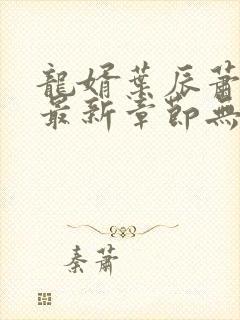 龍婿葉辰蕭
最新章節無
秦蕭